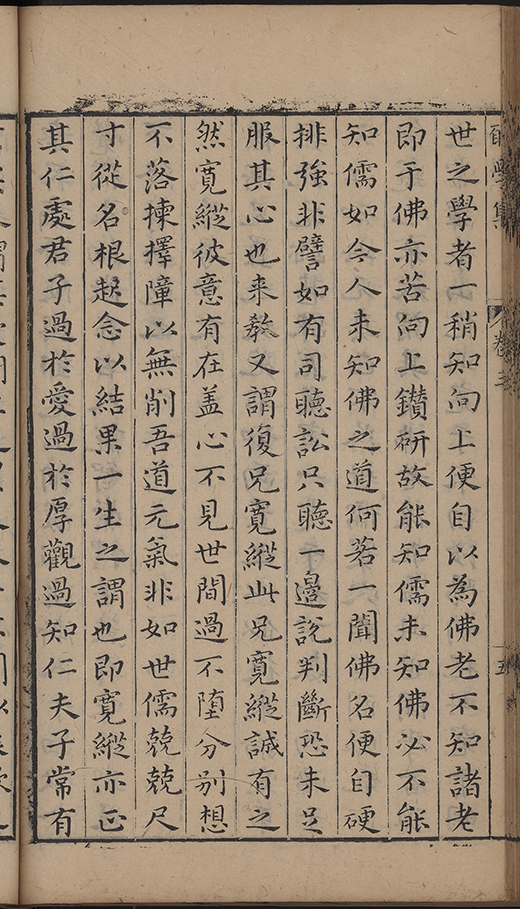 學集 卷三 五
世之學者一稍知向上便自以為佛老不知諸老
即于佛亦苦向上鑽研故能知儒未知佛必不能
知儒如今人未知佛之道何若一聞佛名便自硬
排強非譬如有司聽訟只聽一邊說判斷恐未足
服其心也来教又謂復兄寬縱此兄寬縱誠有之
然寬縱彼意有在盖心不見世間過不墮分别想
不落揀擇障以無削吾道元氣非如世儒兢兢尺
寸從名根起念以結果一生之謂也即寬縱亦正
其仁處君子過於愛過於厚觀過知仁夫子常有